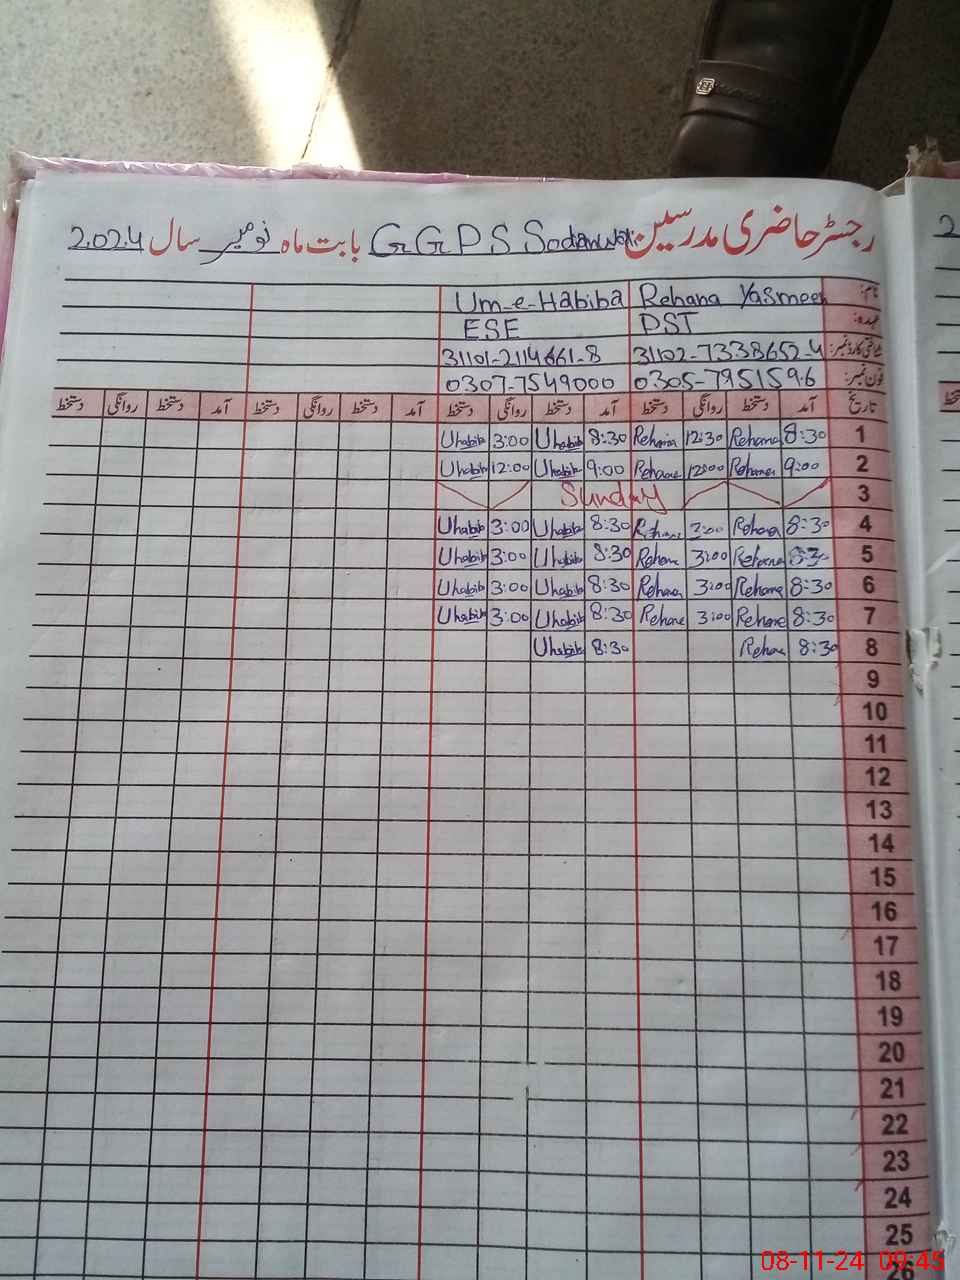 رجسٹر حاضری مدرسین GGPS Sodian Wali بابت ماہ نومبر سال 2024
نام: Rehana Yasmeen Um-e-Habiba
عہدہ: PST ESE
شناختی کارڈ نمبر: 31102-7338652-4 31101-2114661-8
فون نمبر: 0305-7951596 0307-7549000
تاریخ آمد دستخط روانگی دستخط آمد دستخط روانگی دستخط آمد دستخط روانگی دستخط آمد دستخط روانگی دستخط
1 8:30 Rehana 12:30 Rehana 8:30 Uhabib 3:00 Uhabib
2 9:00 Rehana 12:00 Rehana 9:00 Uhabib 12:00 Uhabib
3 Sunday
4 8:30 Rehana 3:00 Rehana 8:30 Uhabib 3:00 Uhabib
5 8:30 Rehana 3:00 Rehana 8:30 Uhabib 3:00 Uhabib
6 8:30 Rehana 3:00 Rehana 8:30 Uhabib 3:00 Uhabib
7 8:30 Rehana 3:00 Rehana 8:30 Uhabib 3:00 Uhabib
8 8:30 Rehana 8:30 Uhabib
9
10
11
12
13
14
15
16
17
18
19
20
21
22
23
24
25
26
08-11-24 09:45